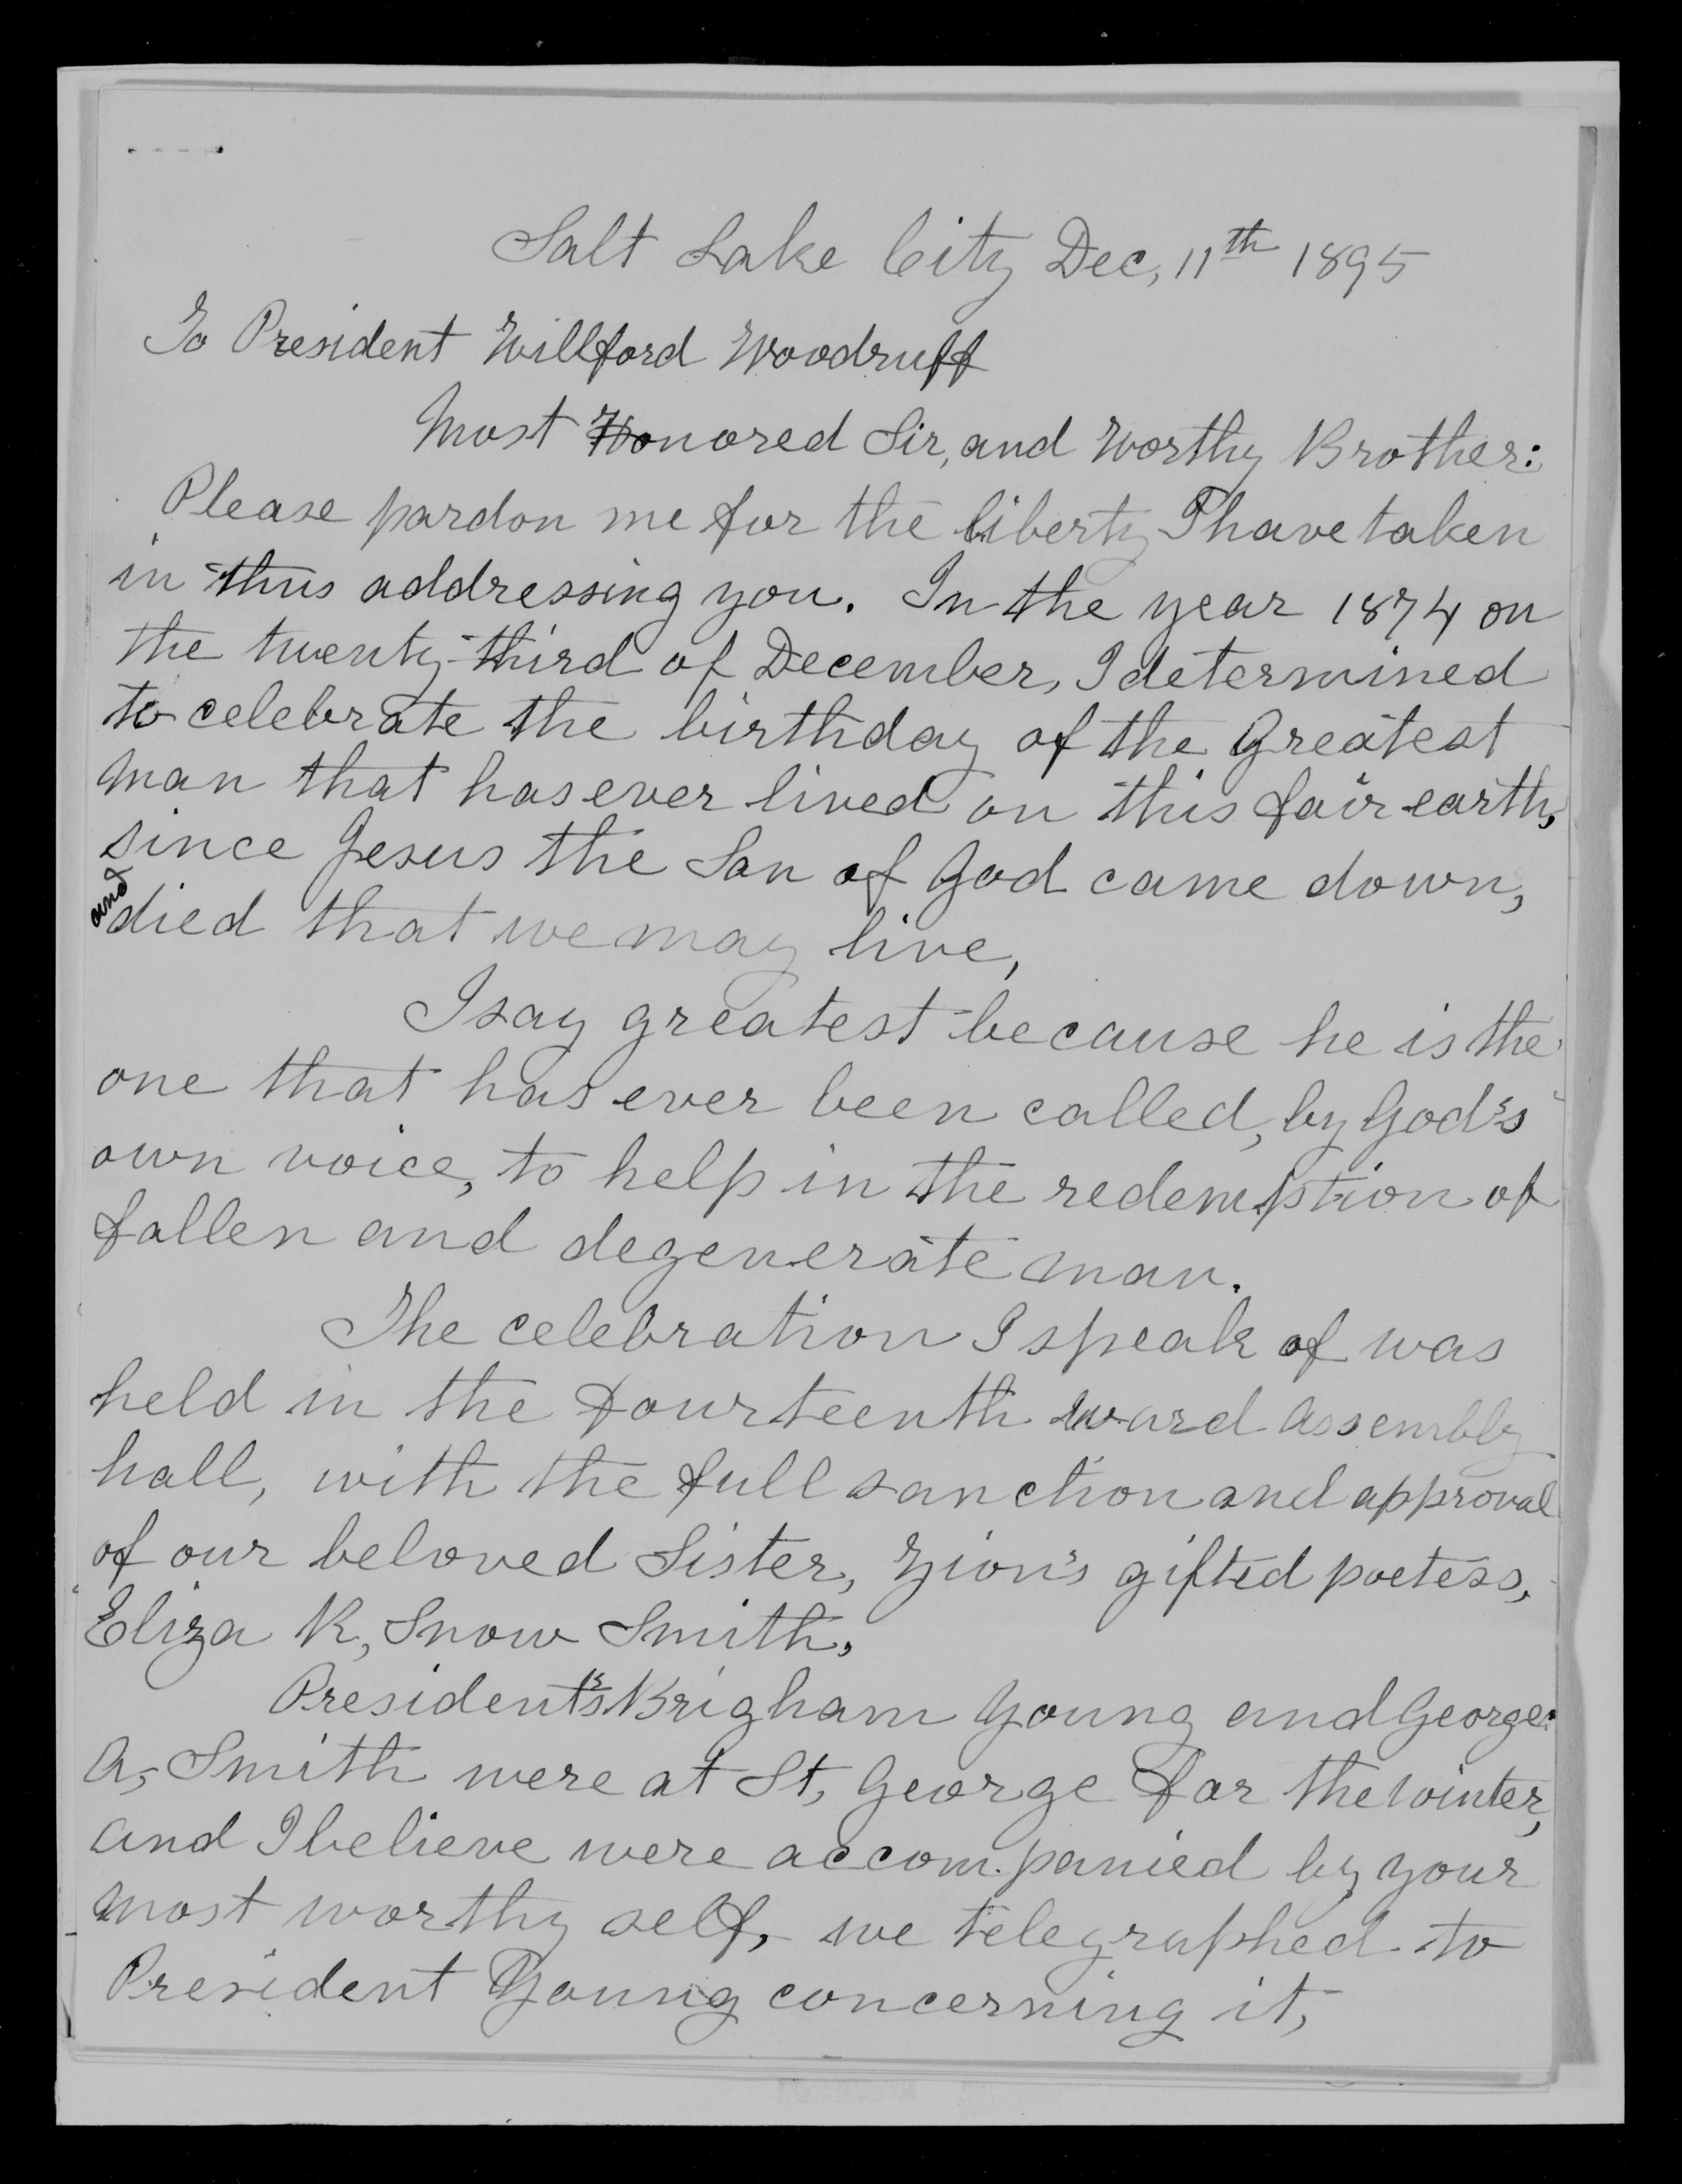 Salt Lake City Dec, 11th 1895
To President Willford Woodruff
Most Honored Sir, and Worthy Brother:
Please pardon me for the liberty I have taken
in thus addressing you. In the year 1874 on
the twenty-third of December, I determined
to celebrate the birthday of the Greatest
man that has ever lived on this fair earth,
since Jesus the Son of God came down,
and died that we may live,
I say greatest because he is the
one that has ever been called, by God's
own voice, to help in the redemption of
fallen and degenerate man.
The celebration I speak of was
held in the fourteenth ward Assembly
hall, with the full sanction and approval
of our beloved Sister, Zion's gifted poetess,
Eliza R, Snow Smith,
President's Brigham Young and George
A, Smith were at St, George for the winter,
and I believe were accompanied by your
most worthy self, we telegraphed to
President Young concerning it,